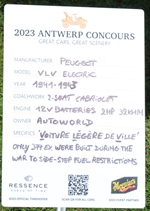 2023 ANTWERP CONCOURS
GREAT CARS, GREAT SCENERY
MANUFACTURER PEUGEOT
MODEL VLV ELECTRIC
YEAR 1941-1945
COACHWORK 2-SEAT CABRIOLET
ENGINE 12V BATTERIES 2HP 32KM/H
OWNER AUTOWORLD
SPECIFICS
'VOITURE LÉGÈRE DE VILLE'
ONLY 377 EX. WERE BUILT DURING THE
WAR TO SIDE-STEP FUEL RESTRICTIONS
RESSENCE
Meguiar's
2023 OFFICIAL TIMEKEEPER
SCAN QR FOR ALL CARS
2023 EVENT PARTNER